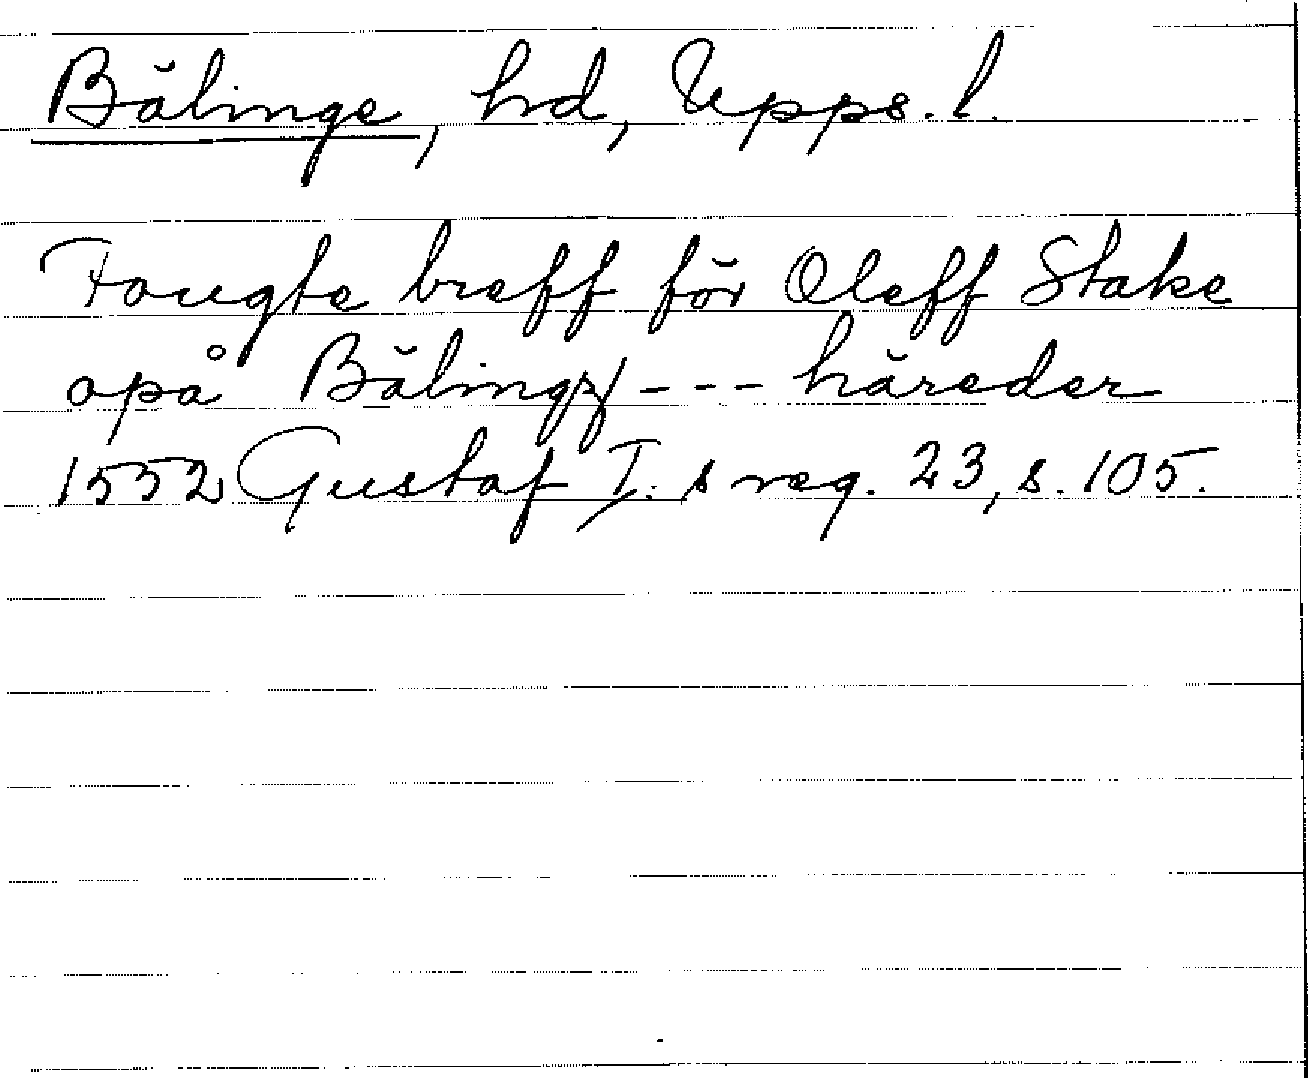 Bälinge, hd, Upps. l.
Fougte breff för Oleff Stake
opå Bälingz --- häreder
1552 Gustaf I:s reg. 23, s. 105.